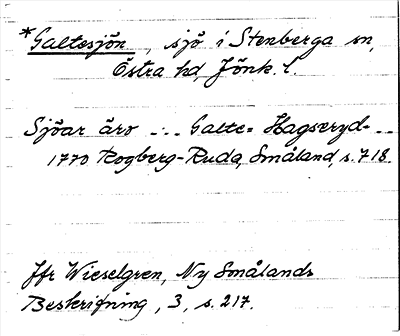 *Galtesjön, sjö i Stenberga sn,
Östra hd, Jönk. l.
Sjöar äro --- Galte= Hagseryd- --
1770 Rogberg-Ruda, Småland, s. 718.
Jfr Wieselgren, Ny Smålands
Beskrifning, 3, s. 217.